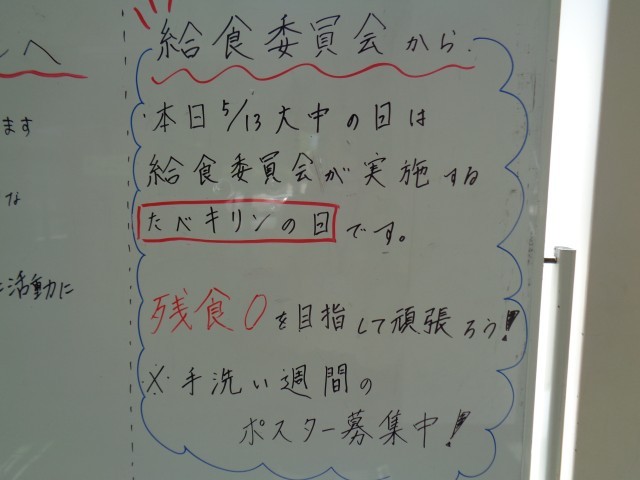 へ
ます
な
活動に
給食委員会から
本日5/13大中の日は
給食委員会が実施する
たべキリンの日です。
残食0を目指して頑張ろう!
※手洗い週間の
ポスター募集中!